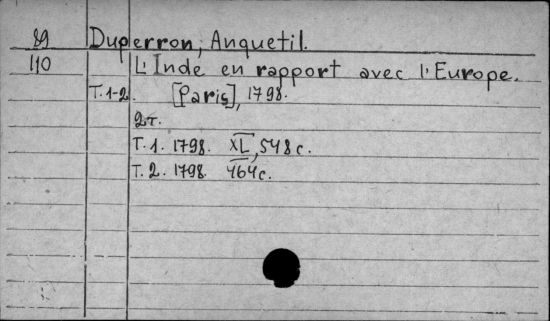 89 Duperron, Anquetil.
110 L'Inde en rapport avec l'Europe.
T. 1-2. [Paris], 1798.
2 т.
T. 1. 1798. XL, 548 с.
T. 2. 1798. 464 с.